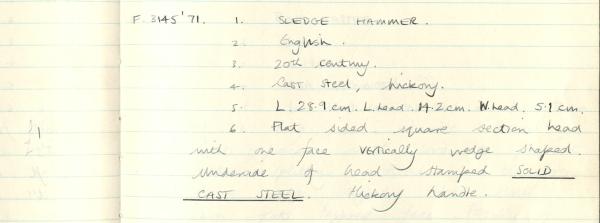 F.3145'71. 1. SLEDGE HAMMER.
2. English.
3. 20th century.
4. Cast steel, hickory.
5. L. 28.9 cm. L.head. 14.2 cm. W.head. 5.1 cm.
6. Flat sided square section head
with one face vertically wedge shaped.
Underside of head stamped SOLID
CAST STEEL. Hickory handle.